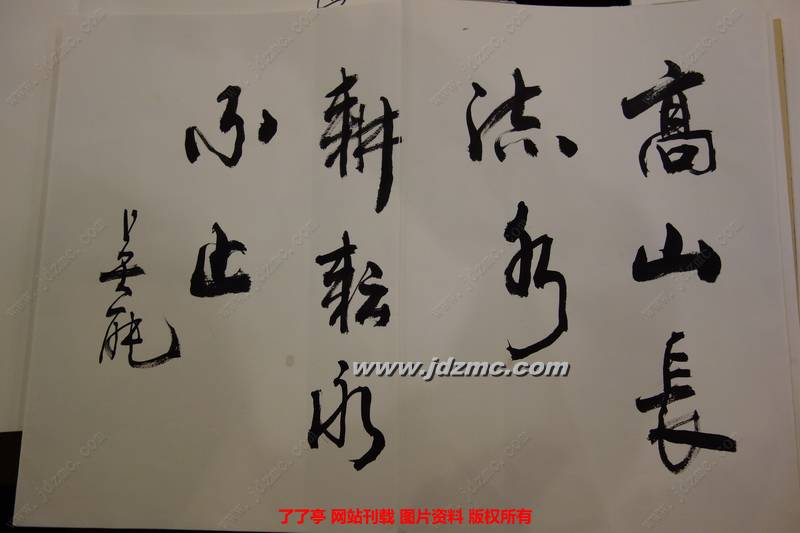 高山長
流水
耕耘永
不止
www.jdzmc.com
了了亭 网站刊载 图片资料 版权所有